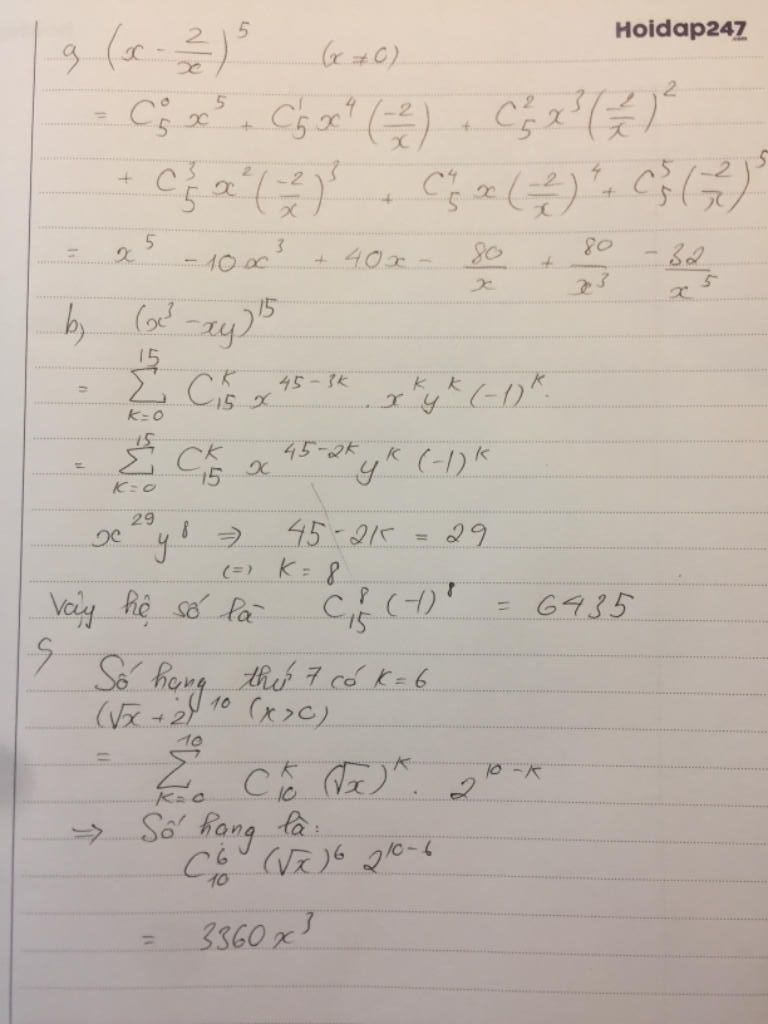 Hoidap247.com
a, (x - 2/x)^5 (x ≠ 0)
= C_5^0 x^5 + C_5^1 x^4 (-2/x) + C_5^2 x^3 (-2/x)^2
+ C_5^3 x^2 (-2/x)^3 + C_5^4 x (-2/x)^4 + C_5^5 (-2/x)^5
= x^5 - 10x^3 + 40x - 80/x + 80/x^3 - 32/x^5
b, (x^3 - xy)^15
= ∑_{k=0}^{15} C_15^k x^{45-3k} . x^k y^k (-1)^k.
= ∑_{k=0}^{15} C_15^k x^{45-2k} y^k (-1)^k
x^29 y^8 ⇒ 45 - 2k = 29
(=) k = 8
Vậy hệ số là C_15^8 (-1)^8 = 6435
c,
Số hạng thứ 7 có k = 6
(√x + 2)^10 (x > 0)
= ∑_{k=0}^{10} C_10^k (√x)^k . 2^{10-k}
⇒ Số hạng là:
C_10^6 (√x)^6 2^{10-6}
= 3360x^3